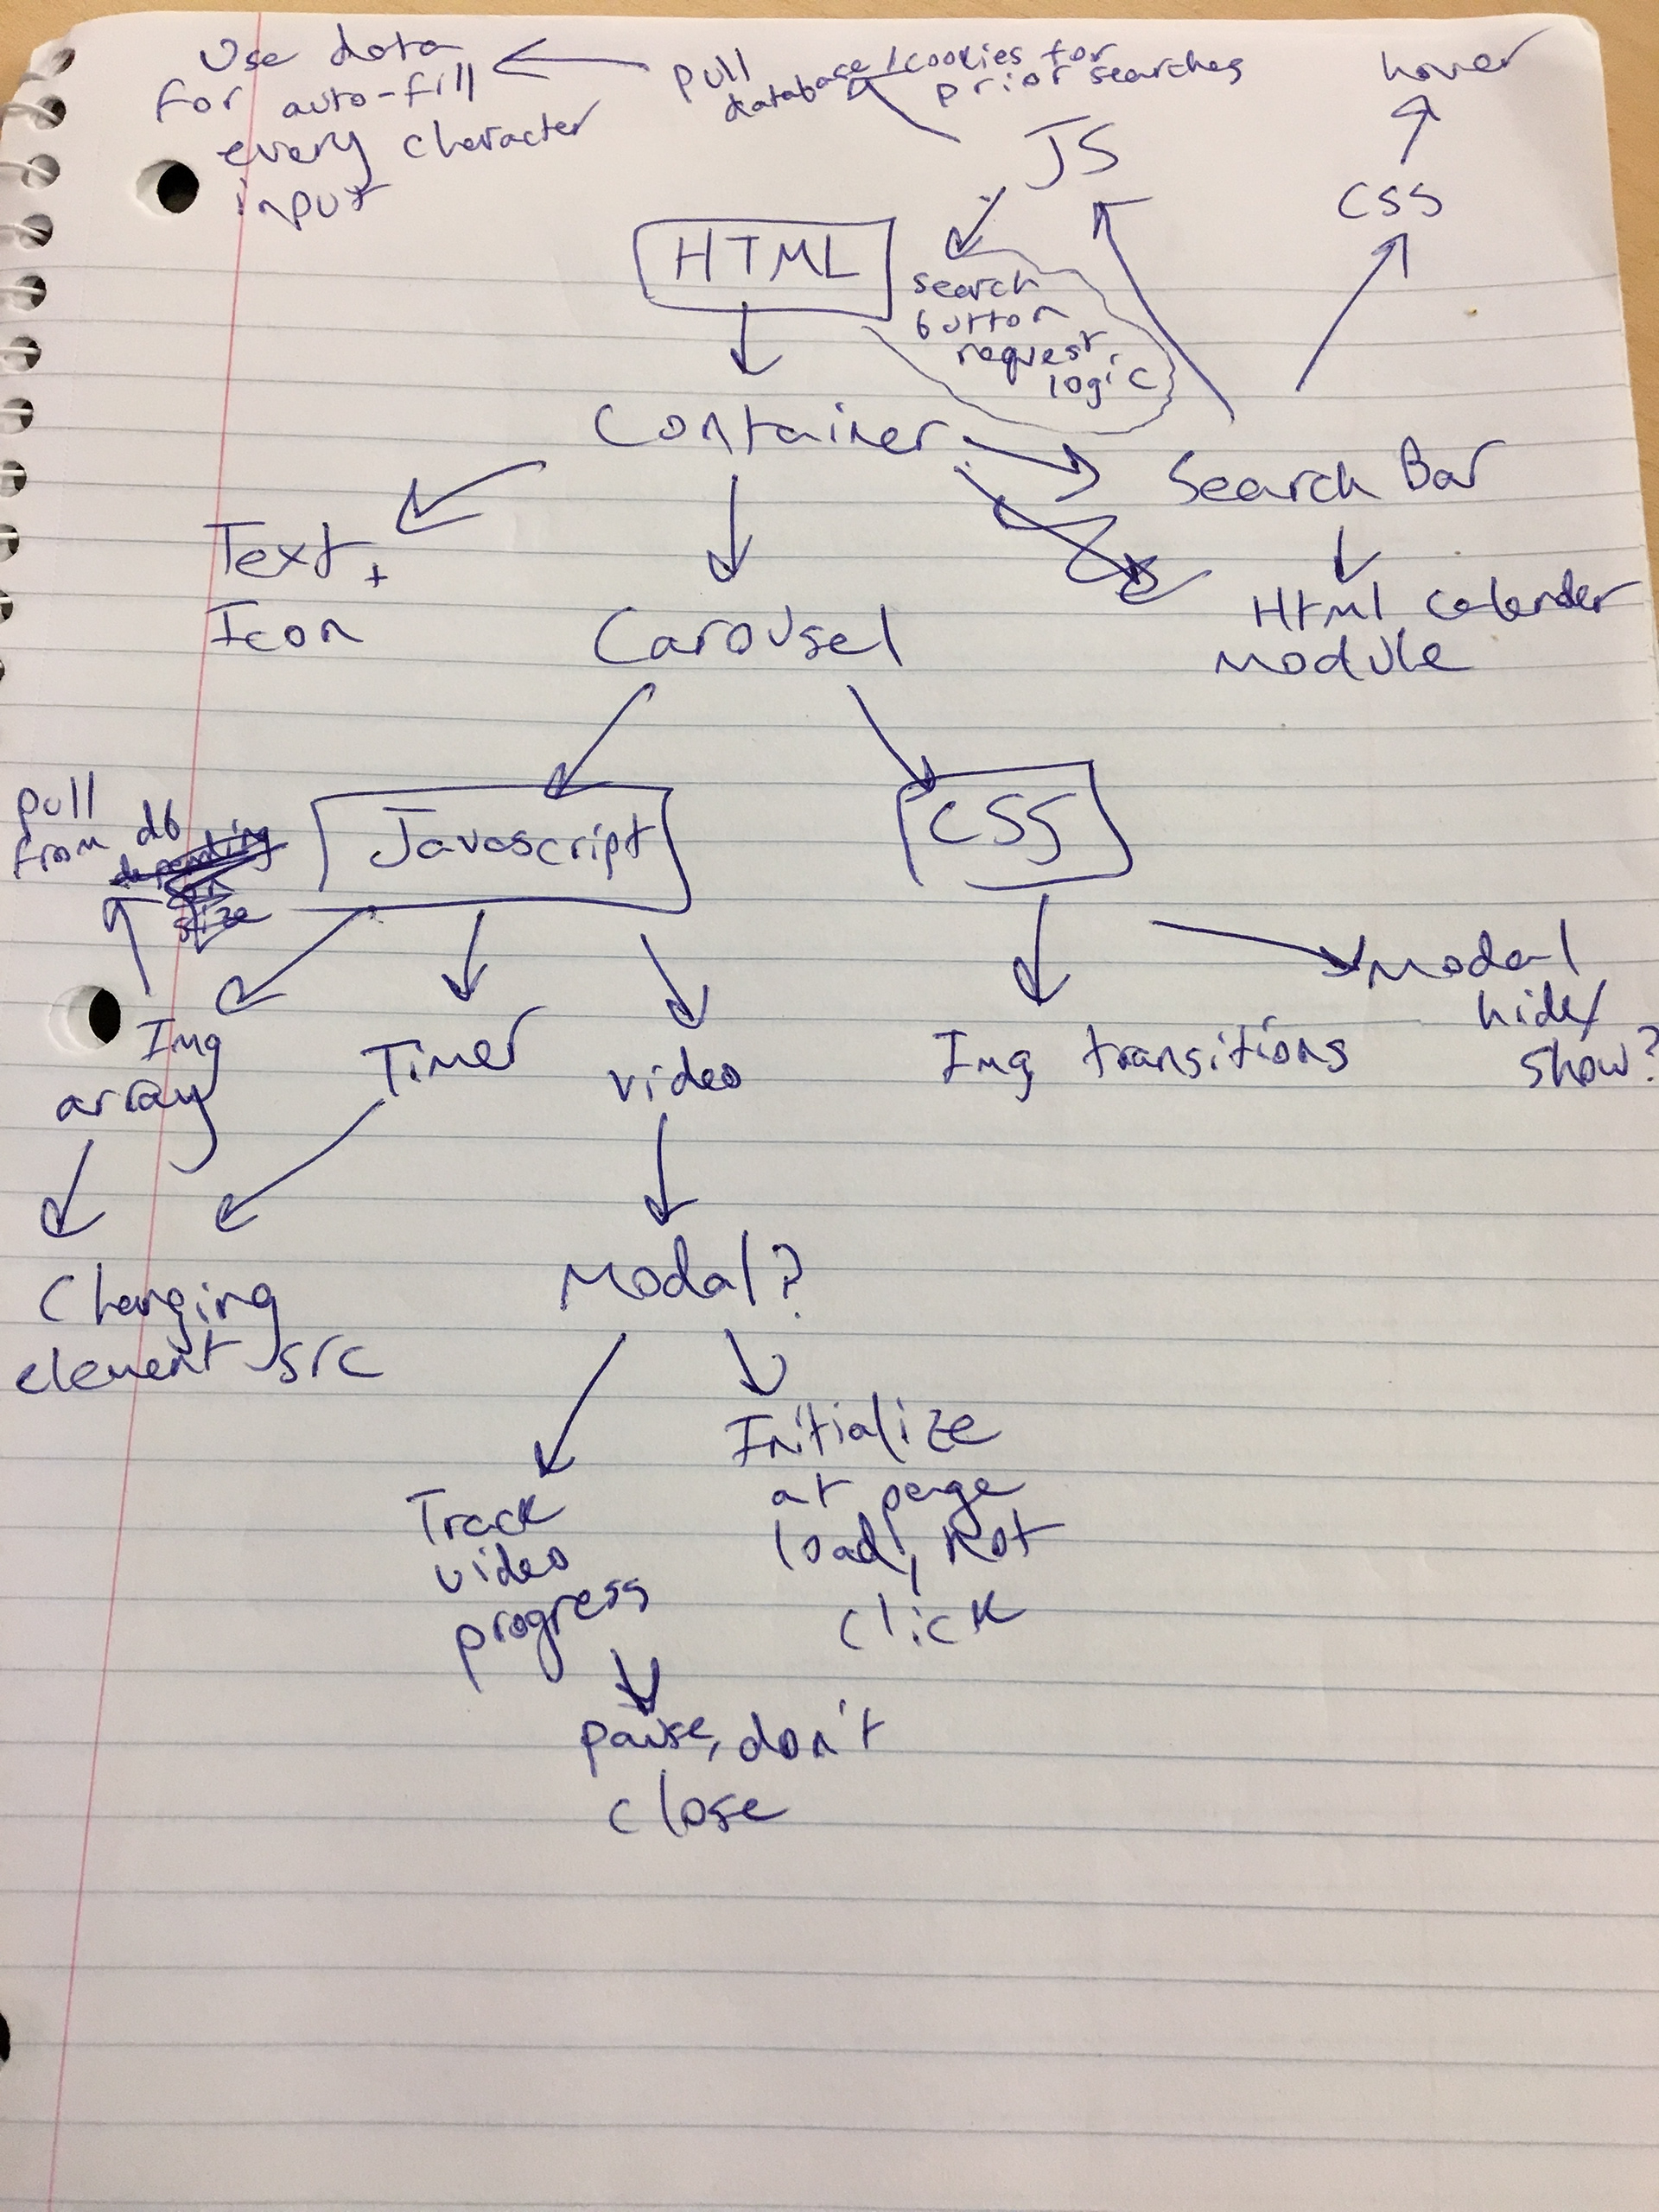 Use data
for auto-fill
every character
input
pull
database/cookies for
prior searches
hover
JS
CSS
HTML
search
button
request
logic
Container
Search Bar
Text +
Icon
Carousel
Html calender
module
pull
from db
depending
size
Javascript
CSS
Modal
hide/
show?
Img
array
Timer
video
Img transitions
Changing
element src
Modal?
Initialize
at page
load, not
click
Track
video
progress
pause, don't
close